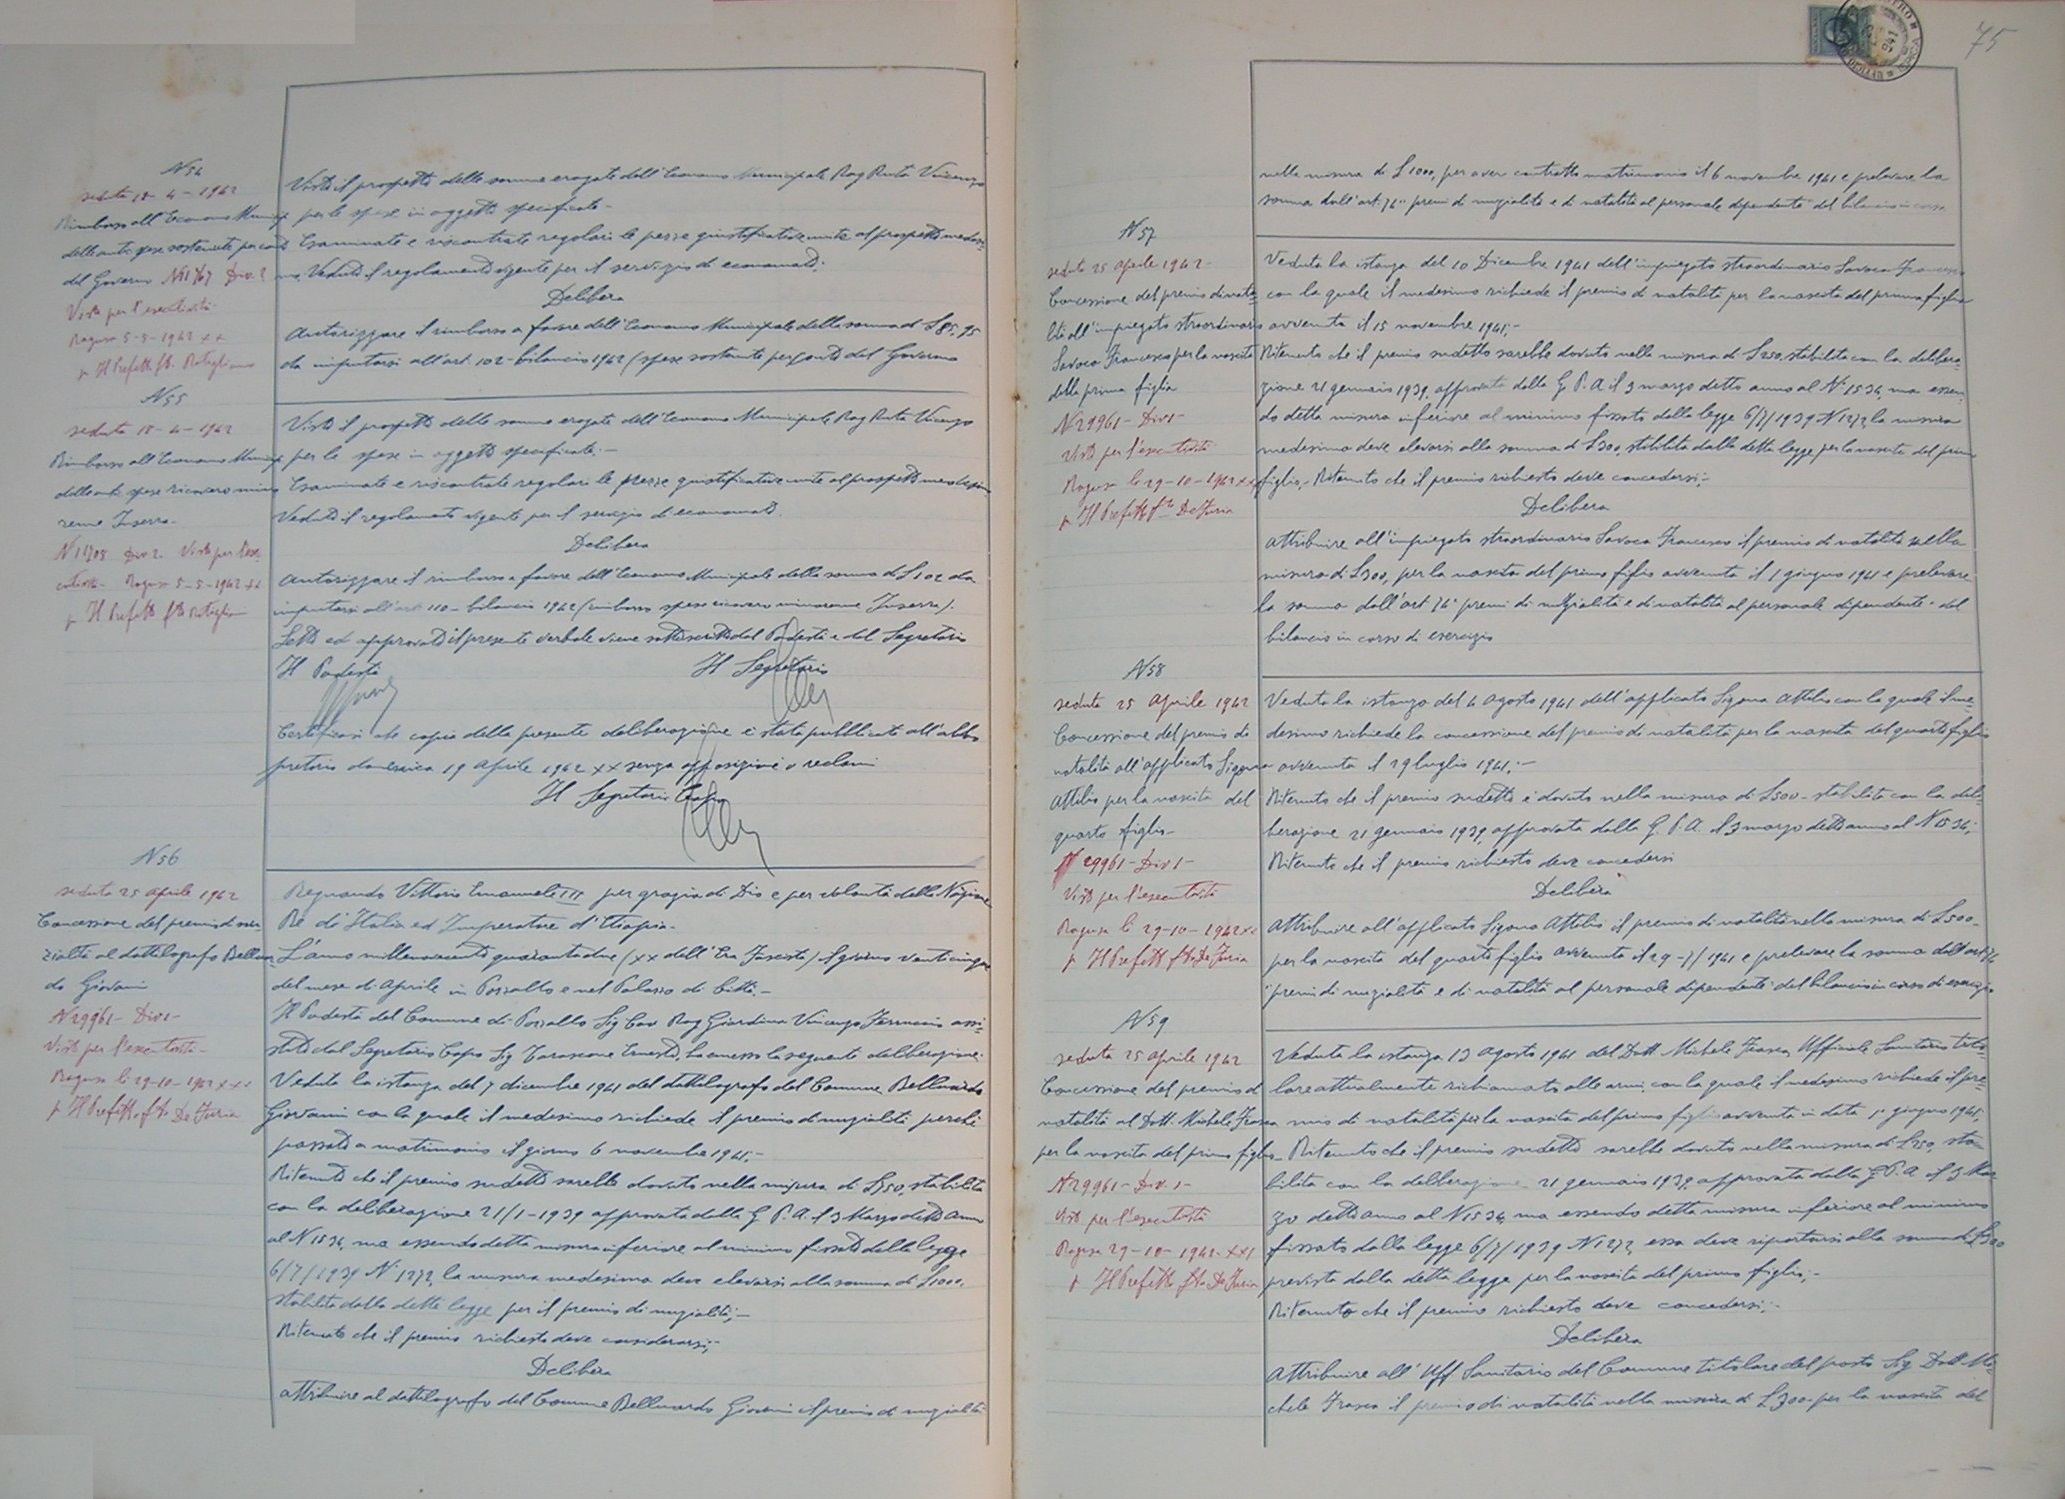 N 54
seduta 18-4-1942
Rimborso all'Economo Municip
delle anti spese sostenute per conto
del Governo N 11767 Div. 2
Visto per l'esecutività
Ragusa 5-5-1942 XX
p Il Prefetto fto
Visto il prospetto delle somme erogate dall'Economo Municipale Rag Ruta Vincenzo
per le spese in oggetto specificate-
Esaminate e riscontrate regolari le pezze giustificative unite al prospetto medesi-
mo Veduto il regolamento vigente per il servizio di economato:
Delibera
Autorizzare il rimborso a favore dell'Economo Municipale della somma di £ 85,95
da imputarsi all'art. 102-bilancio 1942 (spese sostenute per conto del Governo
N 55
seduta 18-4-1942
Rimborso all'Economo Municip
delle anti spese ricovero mino
renne Inserra-
N 11708 Div 2. Visto per l'ese
cutività- Ragusa 5-5-1942 XX
p Il Prefetto fto
Visto il prospetto delle somme erogate dall'Economo Municipale Rag Ruta Vincenzo
per le spese in oggetto specificate:-
Esaminate e riscontrate regolari le pezze giustificative unite al prospetto medesimo
Veduto il regolamento vigente per il servizio di economato.
Delibera
Autorizzare il rimborso a favore dell'Economo Municipale della somma di £ 102 da
imputarsi all'art 110-bilancio 1942 (rimborso spese ricovero minorenne Inserra).
Letto ed approvato il presente verbale viene sottoscritto dal Podestà e dal Segretario
Il Podestà Il Segretario
Certificasi che copia della presente deliberazione è stata pubblicata all'albo
pretorio domenica 19 Aprile 1942 XX senza opposizioni o reclami
Il Segretario Capo
N 56
seduta 25 aprile 1942
Concessione del premio di nu
zialità al dattilografo Belluar
do Giovanni
N 29961- Div 1-
Visto per l'esecutività-
Ragusa li 29-10-1942 XX
p Il Prefetto fto De Juria
Regnando Vittorio Emanuele III per grazia di Dio e per volontà della Nazione
Re d'Italia ed Imperatore d'Etiopia-
L'anno millenovecento quarantadue (XX dell'Era Fascista) il giorno venticinque
del mese di Aprile in Pozzallo e nel Palazzo di Città.-
Il Podestà del Comune di Pozzallo Sig Cav Rag Giardina Vincenzo Ferruccio assi-
stito dal Segretario Capo Sig Tarascone Ernesto, ha emesso la seguente deliberazione.
Veduta la istanza del 7 dicembre 1941 del dattilografo del Comune Belluardo
Giovanni con la quale il medesimo richiede il premio di nuzialità perchè
passato a matrimonio il giorno 6 novembre 1941;-
Ritenuto che il premio sudetto sarebbe dovuto nella misura di £ 750, stabilita
con la deliberazione 21/1-1939 approvata dalla G. P. A. il 3 Marzo detto anno
al N 1534, ma essendo detta misura inferiore al minimo fissato dalla legge
6/7/1939 N° 1272, la misura medesima deve elevarsi alla somma di £ 1000.
stabilita dalla detta legge per il premio di nuzialità;-
Ritenuto che il premio richiesto deve considerarsi;-
Delibera
Attribuire al dattilografo del Comune Belluardo Giovanni il premio di nuzialità
75
nella misura di £ 1000, per aver contratto matrimonio il 6 novembre 1941 e prelevare la
somma dall'art. 76 "premi di nuzialità e di natalità al personale dipendente" del bilancio in corso
N 57
seduta 25 aprile 1942-
Concessione del premio di nata
lità all'impiegato straordinario
Savoca Francesco per la nascita
della prima figlia
N 29961- Div 1-
Visto per l'esecutività
Ragusa li 29-10-1942 XX
p Il Prefetto fto De Juria
Veduta la istanza del 10 Dicembre 1941 dell'impiegato straordinario Savoca Francesco
con la quale il medesimo richiede il premio di natalità per la nascita del prima figlia
avvenuta il 15 novembre 1941;-
Ritenuto che il premio sudetto sarebbe dovuto nella misura di £ 250, stabilita con la delibera-
zione 21 gennaio 1939, approvata dalla G. P. A il 3 marzo detto anno al N° 1534, ma essen-
do detta misura inferiore al minimo fissato dalla legge 6/7/1939 N 1272 la misura
medesima deve elevarsi alla somma di £ 300, stabilita dalla detta legge per la nascita del primo
figlio,- Ritenuto che il premio richiesto deve concedersi;-
Delibera
Attribuire all'impiegato straordinario Savoca Francesco il premio di natalità nella
misura di £ 300, per la nascita del primo figlio avvenuta il 1 giugno 1941 e prelevare
la somma dall'art. 76 "premi di nuzialità e di natalità al personale dipendente" del
bilancio in corso di esercizio
N 58
seduta 25 Aprile 1942
Concessione del premio di
natalità all'applicato Sigona
Attilio per la nascita del
quarto figlio-
N 29961- Div 1-
Visto per l'esecutività
Ragusa li 29-10-1942 XX
p Il Prefetto fto De Juria
Veduta la istanza del 4 Agosto 1941 dell'applicato Sigona Attilio con la quale il me-
desimo richiede la concessione del premio di natalità per la nascita del quarto figlio
avvenuta il 29 luglio 1941;-
Ritenuto che il premio sudetto è dovuto nella misura di £ 500- stabilita con la deli-
berazione 21 gennaio 1939, approvata dalla G. P. A. il 3 marzo detto anno al N 1534;
Ritenuto che il premio richiesto deve concedersi
Delibera
Attribuire all'applicato Sigona Attilio il premio di natalità nella misura di £ 500-
per la nascita del quarto figlio avvenuta il 29-7/1941 e prelevare la somma dall'art 76
"premi di nuzialità e di natalità al personale dipendente" del bilancio in corso di esercizio
N 59
seduta 25 aprile 1942
Concessione del premio di
natalità al Dott. Michele Frasca
per la nascita del primo figlio-
N 29961- Div. 1-
Visto per l'esecutività
Ragusa 29-10-1942. XX
p Il Prefetto fto De Juria
Veduta la istanza 13 agosto 1941 del Dott Michele Frasca Ufficiale Sanitario tito-
lare attualmente richiamato alle armi, con la quale il medesimo richiede il pre-
mio di natalità per la nascita del primo figlio avvenuta in data 1° giugno 1941;
Ritenuto che il premio sudetto sarebbe dovuto nella misura di £ 250, sta-
bilita con la deliberazione 21 gennaio 1939, approvata dalla G. P. A il 3 Mar-
zo detto anno al N 1534, ma essendo detta misura inferiore al minimo
fissato dalla legge 6/7/1939 N 1272, essa deve riportarsi alla somma di £ 300
prevista dalla detta legge per la nascita del primo figlio;-
Ritenuto che il premio richiesto deve concedersi;-
Delibera
Attribuire all'Uff Sanitario del Comune titolare del posto Sig Dott Mi-
chele Frasca il premio di natalità nella misura di £ 300- per la nascita del